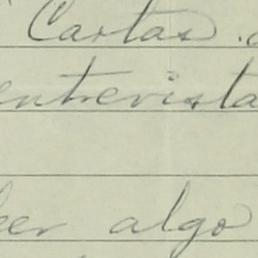 Cartas
entrevista
algo